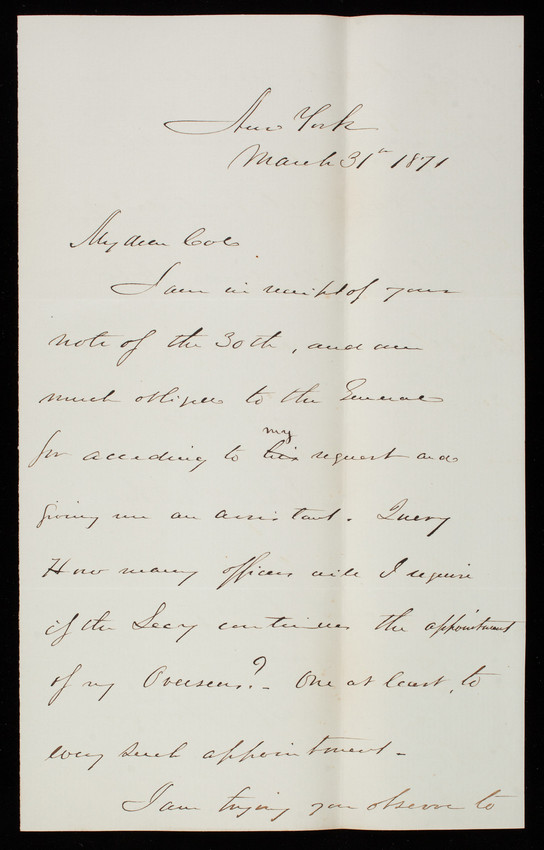 New York
March 31st 1871
My dear Col.
I am in receipt of your
note of the 30th, and am
much obliged to the General
for according to my his request and
giving me an assistant. Query
How many officers will I require
if the Secy continues the appointment
of my Overseers? - One at least, to
every such appointment -
I am trying you observe to